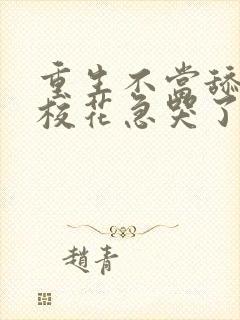 重生不当舔
校花急哭了
趙青